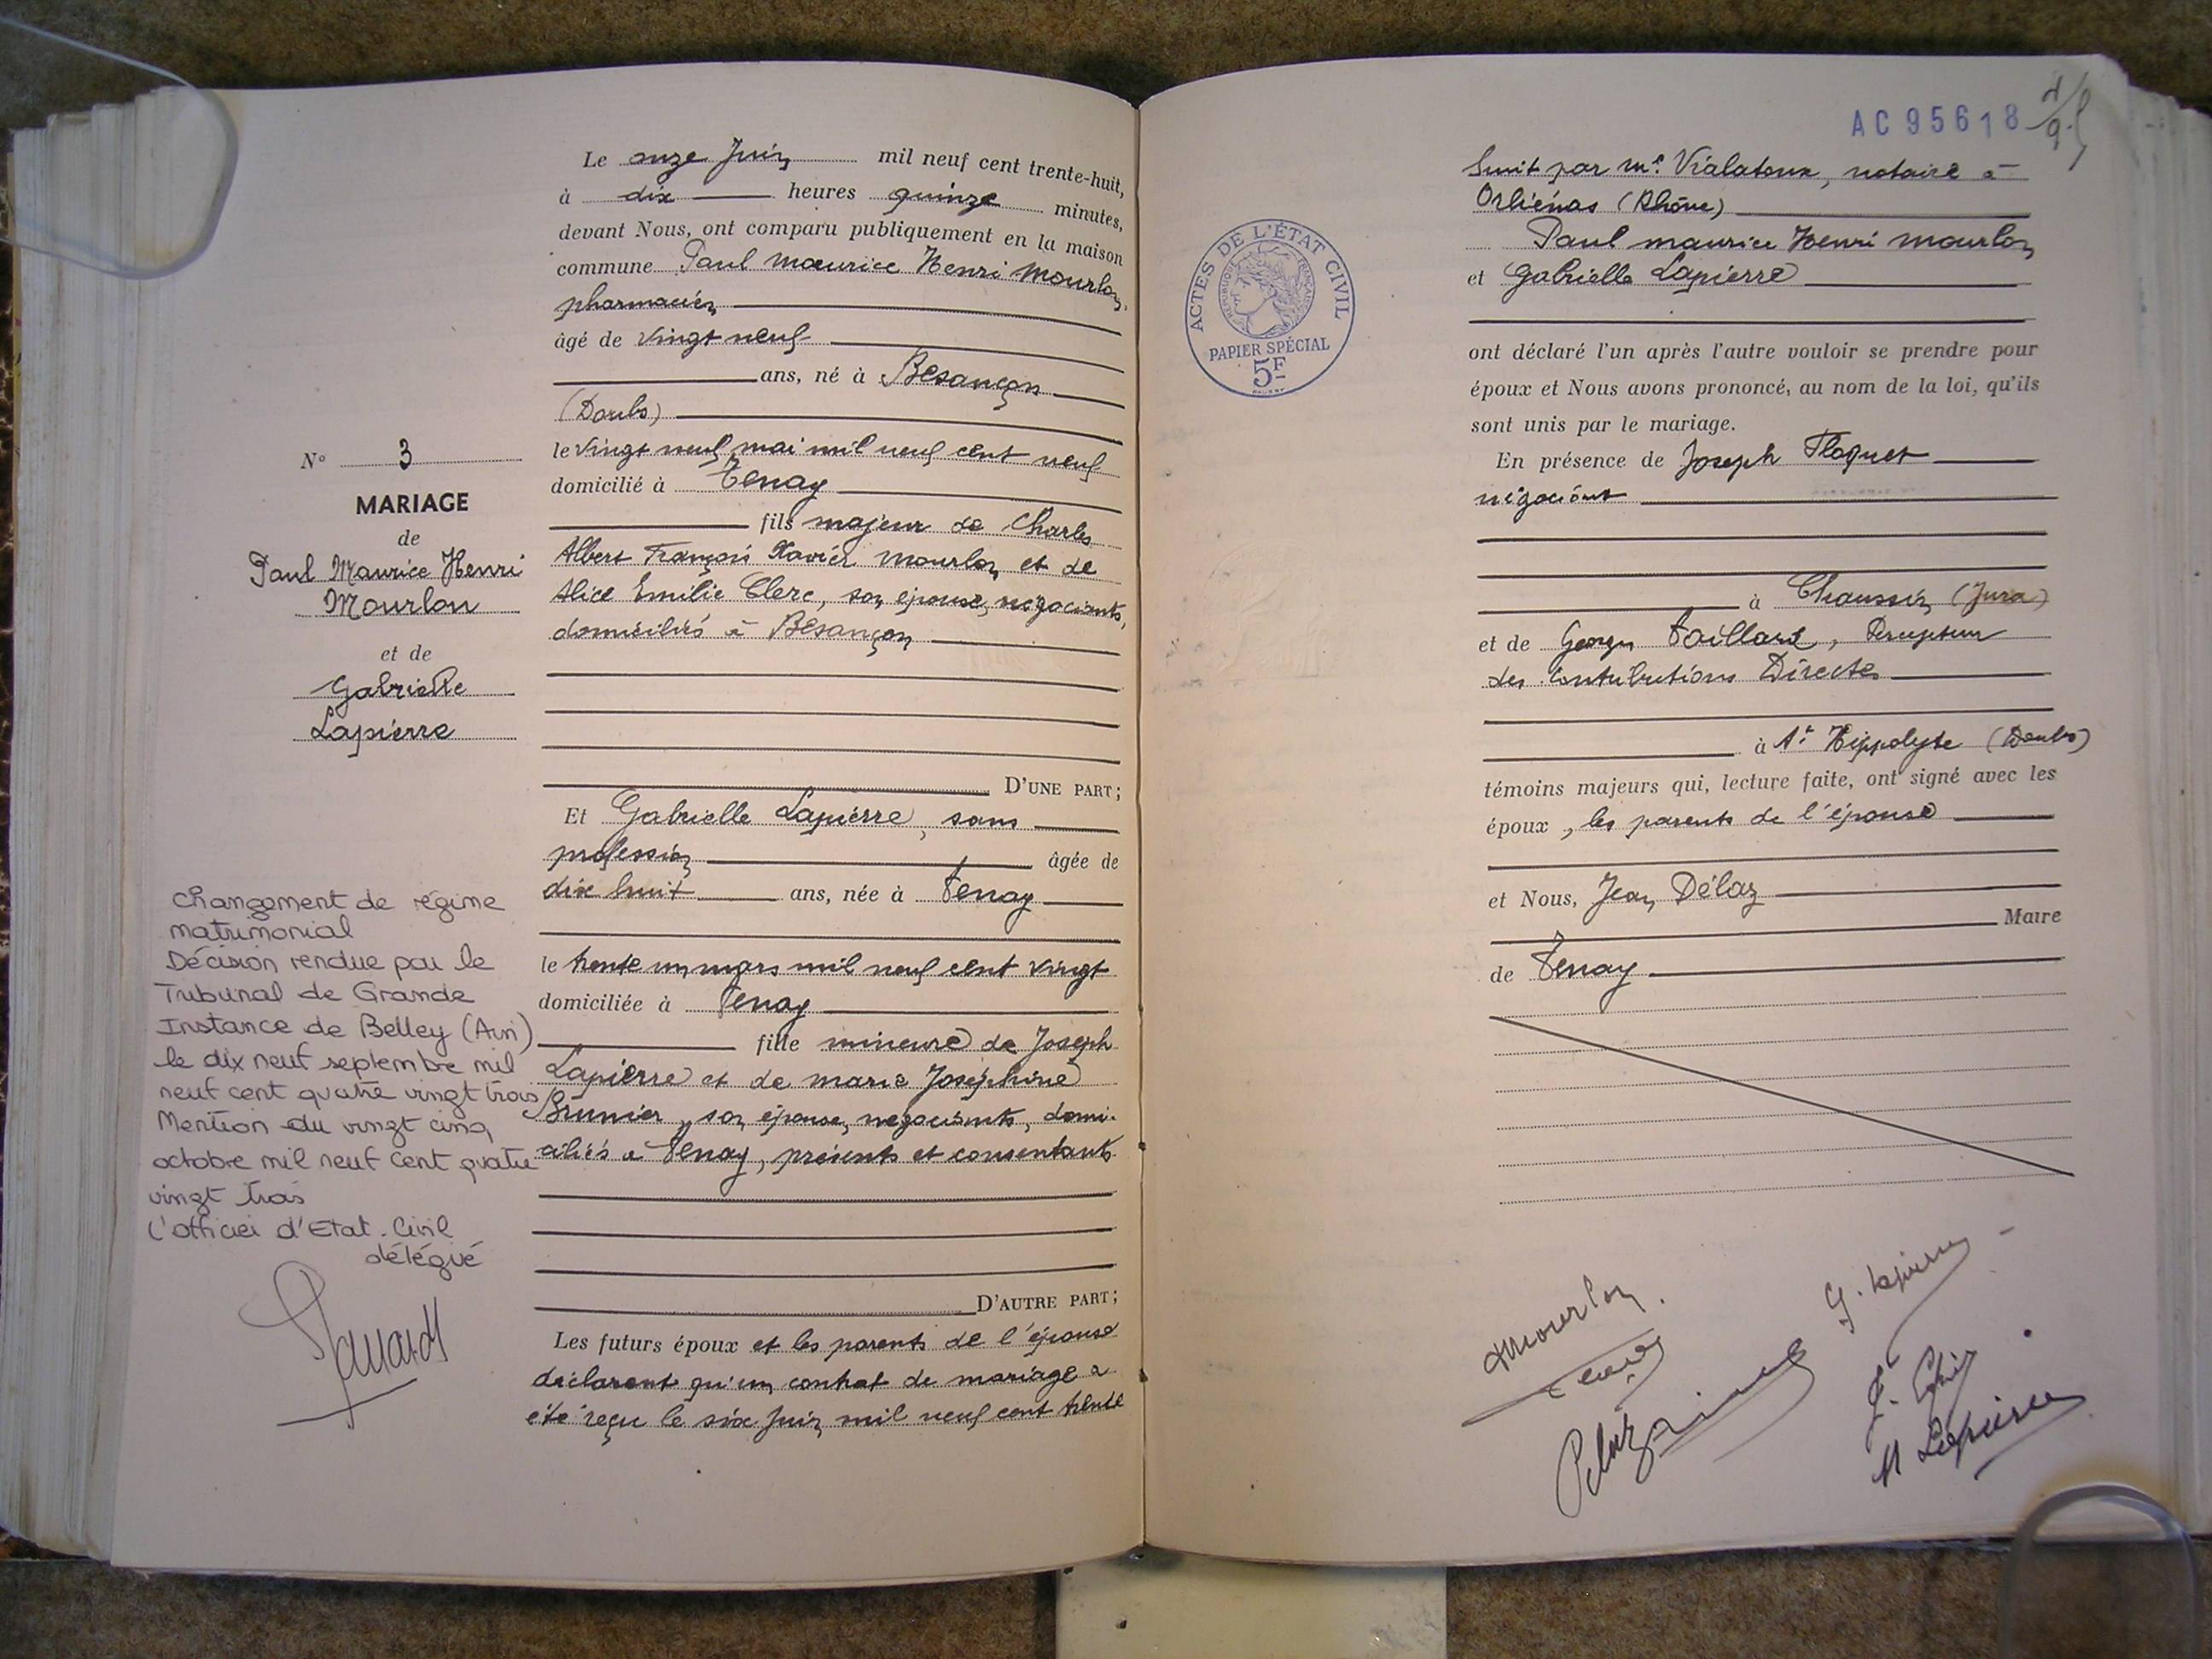 N° 3
MARIAGE
de
Paul Maurice Henri
Mourlon
et de
Gabrielle
Lapierre
Changement de régime
matrimonial
Décision rendue par le
Tribunal de Grande
Instance de Belley (Ain)
le dix neuf septembre mil
neuf cent quatre vingt trois
Mention du vingt cinq
octobre mil neuf cent quatre
vingt trois
L'officier d'Etat-Civil
délégué
Le onze Juin mil neuf cent trente-huit,
à dix heures quinze minutes,
devant Nous, ont comparu publiquement en la maison
commune Paul maurice Henri Mourlon,
pharmacien
âgé de vingt neuf
ans, né à Besançon
(Doubs)
le vingt neuf mai mil neuf cent neuf
domicilié à Tenay
fils majeur de Charles
Albert François Xavier Mourlon et de
Alice Emilie Clerc, son épouse, négociants,
domiciliés à Besançon
D'UNE PART;
Et Gabrielle Lapierre, sans
profession âgée de
dix huit ans, née à Tenay
le trente un mars mil neuf cent vingt
domiciliée à Tenay
fille mineure de Joseph
Lapierre et de marie Joséphine
Brunier, son épouse, négociants, domi-
ciliés à Tenay, présents et consentants
D'AUTRE PART;
Les futurs époux et les parents de l'épouse
déclarent qu'un contrat de mariage a
été reçu le six Juin mil neuf cent trente
AC95618
ACTES DE L'ÉTAT CIVIL
RÉPUBLIQUE FRANÇAISE
PAPIER SPÉCIAL
5F
huit par Me Vialatoux, notaire à
Orliénas (Rhône)
Paul maurice Henri mourlon
et Gabrielle Lapierre
ont déclaré l'un après l'autre vouloir se prendre pour
époux et Nous avons prononcé, au nom de la loi, qu'ils
sont unis par le mariage.
En présence de Joseph Floquet
négociant
à Chaussin (Jura)
et de Georges Taillard, Percepteur
des Contributions Directes
à St Hippolyte (Doubs)
témoins majeurs qui, lecture faite, ont signé avec les
époux, les parents de l'épouse
et Nous, Jean Pélaz
Maire
de Tenay
Mourlon
G. Lapierre
M Lapierre